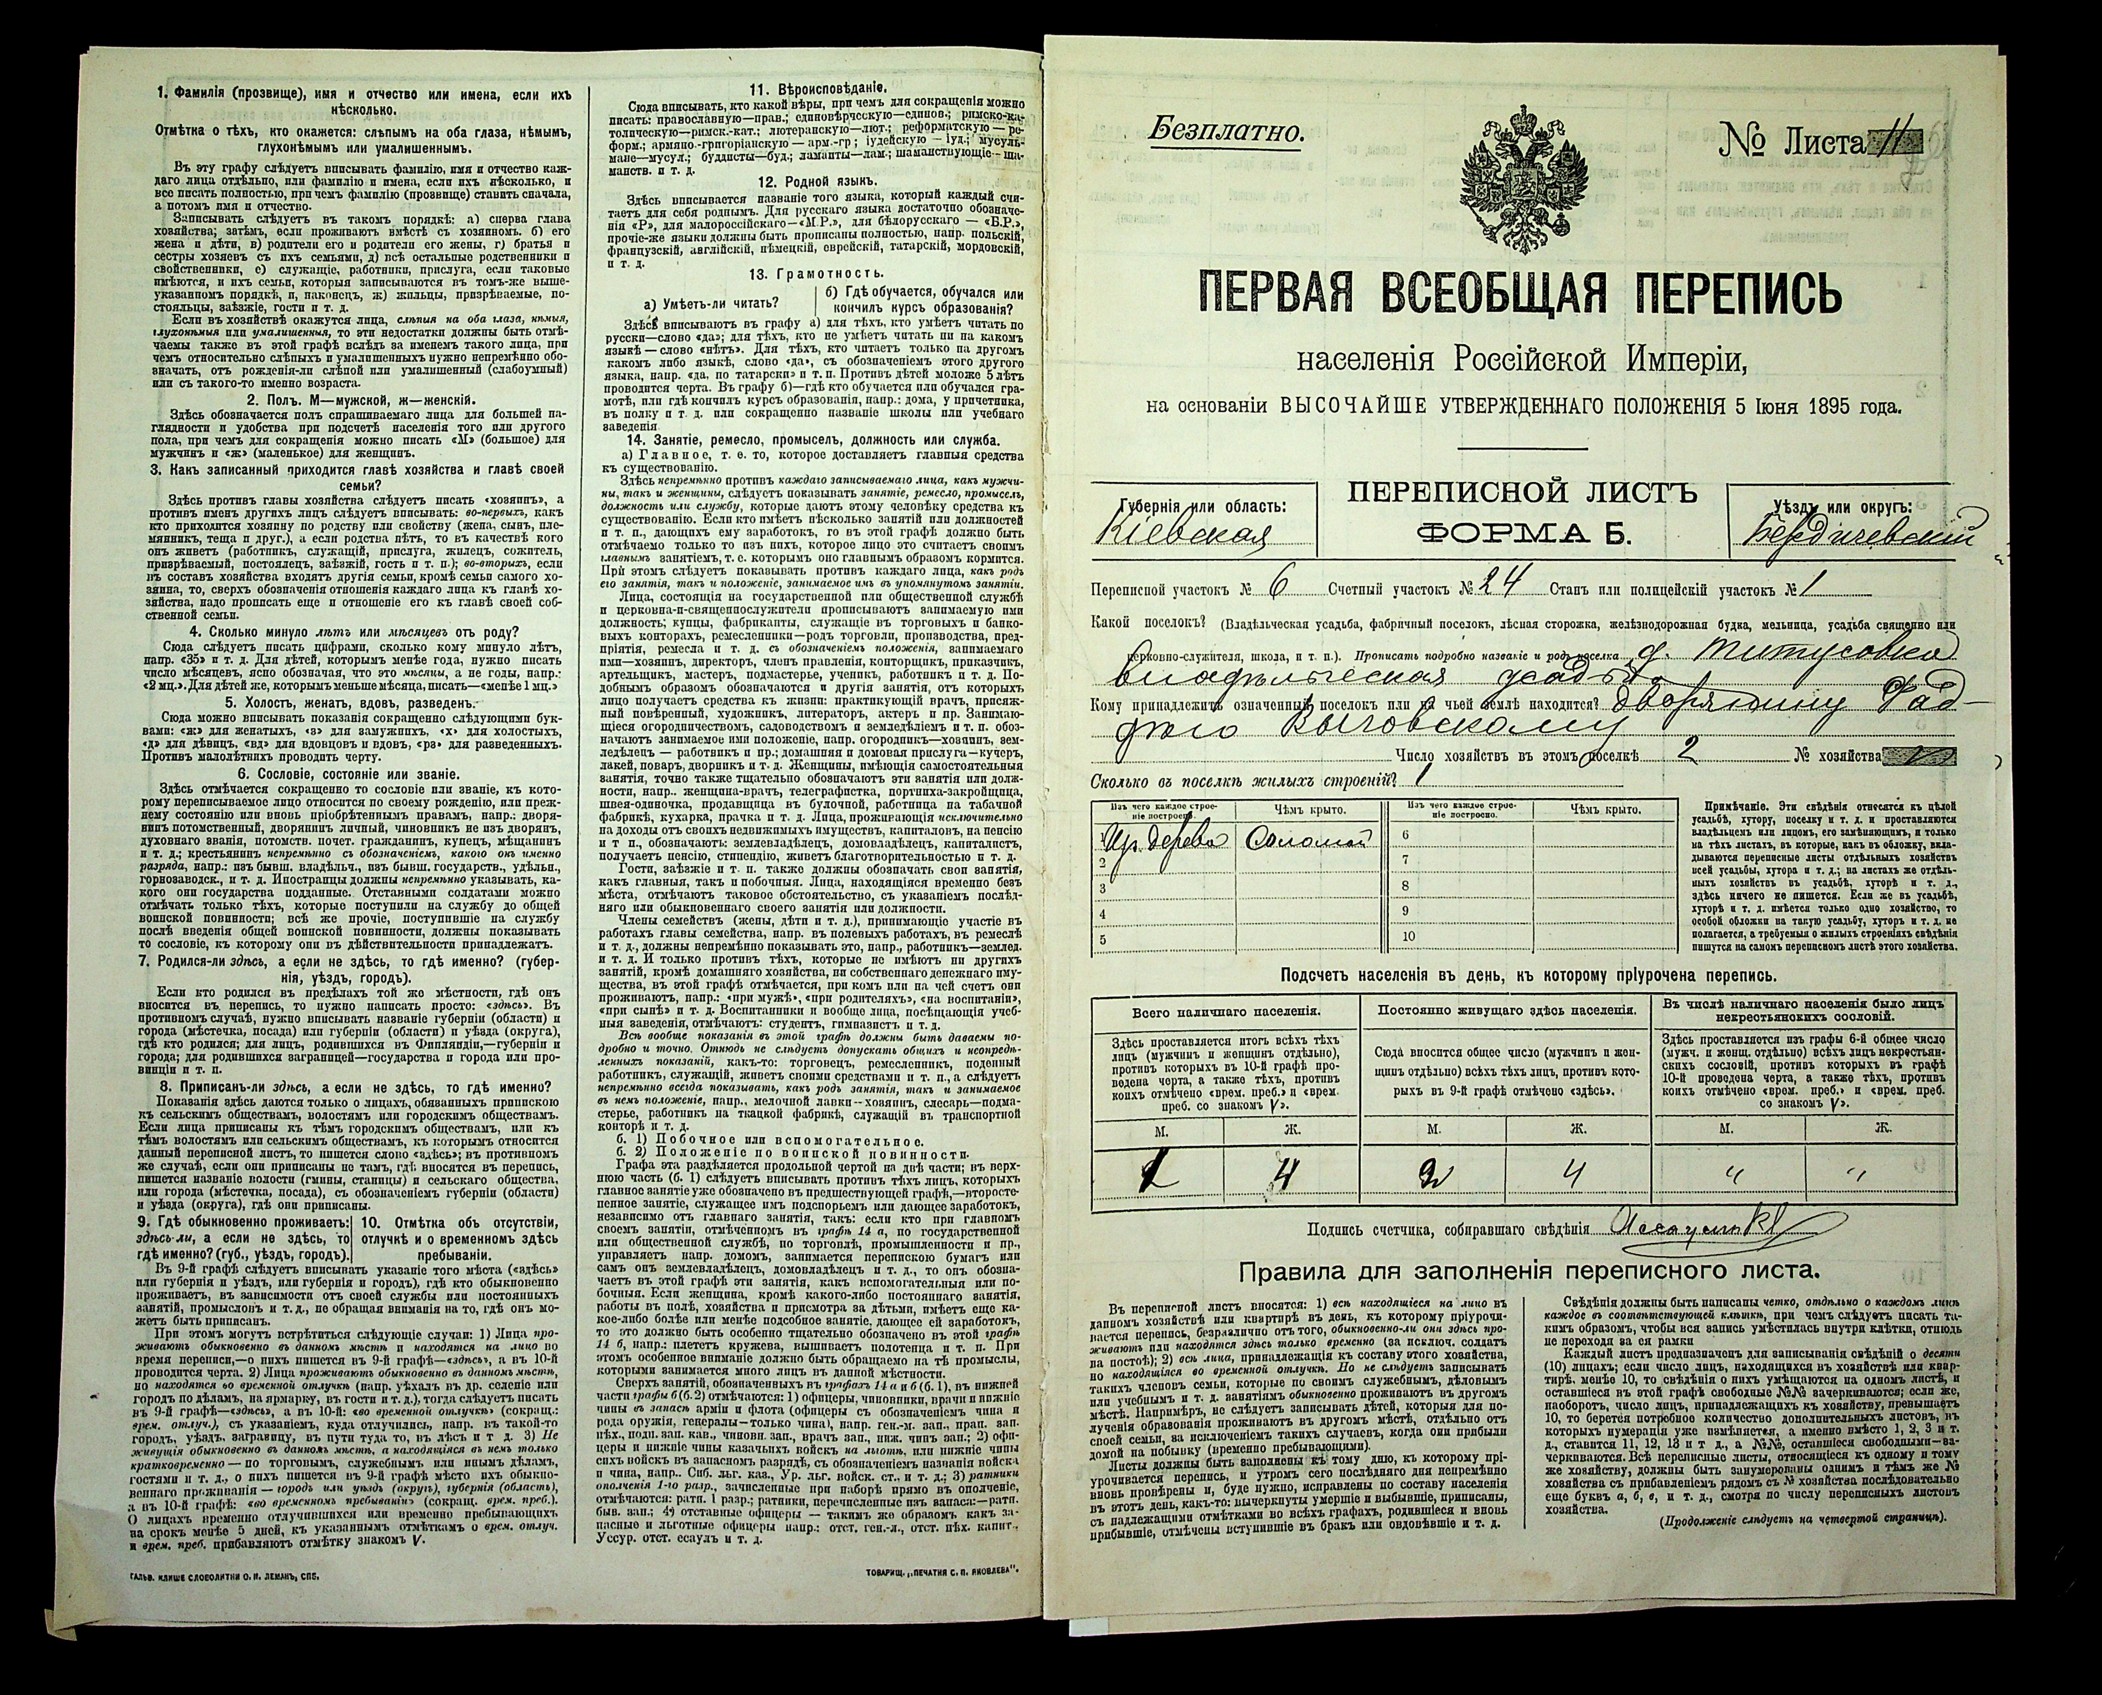 1. Фамилія (прозвище), имя и отчество или имена, если ихъ
нѣсколько.
Отмѣтка о тѣхъ, кто окажется: слѣпымъ на оба глаза, нѣмымъ,
глухонѣмымъ или умалишеннымъ.
Въ эту графу слѣдуетъ вписывать фамилію, имя и отчество каж-
даго лица отдѣльно, или фамилію и имена, если ихъ нѣсколько, и
все писать полностью, при чемъ фамилію (прозвище) ставить сначала,
а потомъ имя и отчество.
Записывать слѣдуетъ въ такомъ порядкѣ: а) сперва глава
хозяйства; затѣмъ, если проживаютъ вмѣстѣ съ хозяиномъ. б) его
жена и дѣти, в) родители его и родители его жены, г) братья и
сестры хозяевъ съ ихъ семьями, д) всѣ остальные родственники и
свойственники, е) служащіе, работники, прислуга, если таковые
имѣются, и ихъ семьи, которыя записываются въ томъ-же выше-
указанномъ порядкѣ, и, наконецъ, ж) жильцы, призрѣваемые, по-
стояльцы, заѣзжіе, гости и т. п.
Если въ хозяйствѣ окажутся лица, слѣпыя на оба глаза, нѣмыя,
глухонѣмыя или умалишенныя, то эти недостатки должны быть отмѣ-
чаемы также въ этой графѣ вслѣдъ за именемъ такого лица, при
чемъ относительно слѣпыхъ и умалишенныхъ нужно непремѣнно обо-
значать, отъ рожденія-ли слѣпой или умалишенный (слабоумный)
или съ такого-то именно возраста.
2. Полъ. М—мужской, ж—женскій.
Здѣсь обозначается полъ спрашиваемаго лица для большей на-
глядности и удобства при подсчетѣ населенія того или другого
пола, при чемъ для сокращенія можно писать «М» (большое) для
мужчинъ и «ж» (маленькое) для женщинъ.
3. Какъ записанный приходится главѣ хозяйства и главѣ своей
семьи?
Здѣсь противъ главы хозяйства слѣдуетъ писать «хозяинъ», а
противъ именъ другихъ лицъ слѣдуетъ вписывать: во-первыхъ, какъ
кто приходится хозяину по родству или свойству (жена, сынъ, пле-
мянникъ, теща и друг.), а если родства нѣтъ, то въ качествѣ кого
онъ живетъ (работникъ, служащій, прислуга, жилецъ, сожитель,
призрѣваемый, постоялецъ, заѣзжій, гость и т. п.); во-вторыхъ, если
въ составъ хозяйства входятъ другія семьи, кромѣ семьи самого хо-
зяина, то, сверхъ обозначенія отношенія каждаго лица къ главѣ хо-
зяйства, надо прописать еще и отношеніе его къ главѣ своей соб-
ственной семьи.
4. Сколько минуло лѣтъ или мѣсяцевъ отъ роду?
Сюда слѣдуетъ писать цифрами, сколько кому минуло лѣтъ,
напр. «35» и т. д. Для дѣтей, которымъ менѣе года, нужно писать
число мѣсяцевъ, ясно обозначая, что это мѣсяцы, а не годы, напр.:
«2 мц.». Для дѣтей же, которымъ меньше мѣсяца, писать—«менѣе 1 мц.»
5. Холостъ, женатъ, вдовъ, разведенъ.
Сюда можно вписывать показанія сокращенно слѣдующими бук-
вами: «ж» для женатыхъ, «з» для замужнихъ, «х» для холостыхъ,
«д» для дѣвицъ, «вд» для вдовцовъ и вдовъ, «рз» для разведенныхъ.
Противъ малолѣтнихъ проводить черту.
6. Сословіе, состояніе или званіе.
Здѣсь отмѣчается сокращенно то сословіе или званіе, къ кото-
рому переписываемое лицо относится по своему рожденію, или преж-
нему состоянію или вновь пріобрѣтеннымъ правамъ, напр.: дворя-
нинъ потомственный, дворянинъ личный, чиновникъ не изъ дворянъ,
духовнаго званія, потомств. почет. гражданинъ, купецъ, мѣщанинъ
и т. д.; крестьянинъ непремѣнно съ обозначеніемъ, какого онъ именно
разряда, напр.: изъ бывш. владѣльч., изъ бывш. государств., удѣльн.,
горнозаводск., и т. д. Иностранцы должны непремѣнно указывать, ка-
кого они государства подданные. Отставными солдатами можно
отмѣчать только тѣхъ, которые поступили на службу до общей
воинской повинности; всѣ же прочіе, поступившіе на службу
послѣ введенія общей воинской повинности, должны показывать
то сословіе, къ которому они въ дѣйствительности принадлежатъ.
7. Родился-ли здѣсь, а если не здѣсь, то гдѣ именно? (губер-
нія, уѣздъ, городъ).
Если кто родился въ предѣлахъ той же мѣстности, гдѣ онъ
вносится въ перепись, то нужно написать просто: «здѣсь». Въ
противномъ случаѣ, нужно вписывать названіе губерніи (области) и
города (мѣстечка, посада) или губерніи (области) и уѣзда (округа),
гдѣ кто родился; для лицъ, родившихся въ Финляндіи,—губерніи и
города; для родившихся заграницей—государства и города или про-
винціи и т. п.
8. Приписанъ-ли здѣсь, а если не здѣсь, то гдѣ именно?
Показанія здѣсь даются только о лицахъ, обязанныхъ припискою
къ сельскимъ обществамъ, волостямъ или городскимъ обществамъ.
Если лица приписаны къ тѣмъ городскимъ обществамъ, или къ
тѣмъ волостямъ или сельскимъ обществамъ, къ которымъ относится
данный переписной листъ, то пишется слово «здѣсь»; въ противномъ
же случаѣ, если они приписаны не тамъ, гдѣ вносятся въ перепись,
пишется названіе волости (гмины, станицы) и сельскаго общества,
или города (мѣстечка, посада), съ обозначеніемъ губерніи (области)
и уѣзда (округа), гдѣ они приписаны.
9. Гдѣ обыкновенно проживаетъ:
здѣсь-ли, а если не здѣсь, то
гдѣ именно? (губ., уѣздъ, городъ).
10. Отмѣтка объ отсутствіи,
отлучкѣ и о временномъ здѣсь
пребываніи.
Въ 9-й графѣ слѣдуетъ вписывать указаніе того мѣста («здѣсь»
или губернія и уѣздъ, или губернія и городъ), гдѣ кто обыкновенно
проживаетъ, въ зависимости отъ своей службы или постоянныхъ
занятій, промысловъ и т. д., не обращая вниманія на то, гдѣ онъ мо-
жетъ быть приписанъ.
При этомъ могутъ встрѣтиться слѣдующіе случаи: 1) Лица про-
живаютъ обыкновенно въ данномъ мѣстѣ и находятся на лицо во
время переписи,—о нихъ пишется въ 9-й графѣ—«здѣсь», а въ 10-й
проводится черта. 2) Лица проживаютъ обыкновенно въ данномъ мѣстѣ,
но находятся во временной отлучкѣ (напр. уѣхалъ въ др. селеніе или
городъ по дѣламъ, на ярмарку, въ гости и т. д.), тогда слѣдуетъ писать
въ 9-й графѣ—«здѣсь», а въ 10-й: «во временной отлучкѣ» (сокращ.:
врем. отлуч.), съ указаніемъ, куда отлучились, напр. въ такой-то
городъ, уѣздъ, заграницу, въ пути туда то, въ лѣсъ и т д. 3) Не
живущія обыкновенно въ данномъ мѣстѣ, а находящіяся въ немъ только
кратковременно — по торговымъ, служебнымъ или инымъ дѣламъ,
гостями и т. д., о нихъ пишется въ 9-й графѣ мѣсто ихъ обыкно-
веннаго проживанія — городъ или уѣздъ (округъ), губернія (область),
а въ 10-й графѣ: «во временномъ пребываніи» (сокращ. врем. преб.).
О лицахъ временно отлучившихся или временно пребывающихъ
на срокъ менѣе 5 дней, къ указаннымъ отмѣткамъ о врем. отлуч.
и врем. преб. прибавляютъ отмѣтку знакомъ V.
ГАЛЬВ. КЛИШЕ СЛОВОЛИТНИ О. И. ЛЕМАНЪ, СПБ.
11. Вѣроисповѣданіе.
Сюда вписывать, кто какой вѣры, при чемъ для сокращенія можно
писать: православную—прав.; единовѣрческую—единов.; римско-ка-
толическую—римск.-кат.; лютеранскую—лют.; реформатскую — ре-
форм.; армяно.-григоріанскую — арм.-гр; іудейскую — іуд.; мусуль-
мане—мусул.; буддисты—буд.; ламаиты—лам.; шаманствующіе— ша-
манств. и т. д.
12. Родной языкъ.
Здѣсь вписывается названіе того языка, который каждый счи-
таетъ для себя роднымъ. Для русскаго языка достаточно обозначе-
нія «Р», для малороссійскаго—«М.Р.», для бѣлорусскаго — «Б.Р.»,
прочіе-же языки должны быть прописаны полностью, напр. польскій,
французскій, англійскій, нѣмецкій, еврейскій, татарскій, мордовскій,
и т. д.
13. Грамотность.
а) Умѣетъ-ли читать?
б) Гдѣ обучается, обучался или
кончилъ курсъ образованія?
Здѣсь вписываютъ въ графу а) для тѣхъ, кто умѣетъ читать по
русски—слово «да»; для тѣхъ, кто не умѣетъ читать ни на какомъ
языкѣ — слово «нѣтъ». Для тѣхъ, кто читаетъ только на другомъ
какомъ либо языкѣ, слово «да», съ обозначеніемъ этого другого
языка, напр. «да, по татарски» и т. п. Противъ дѣтей моложе 5 лѣтъ
проводится черта. Въ графу б)—гдѣ кто обучается или обучался гра-
мотѣ, или гдѣ кончилъ курсъ образованія, напр.: дома, у причетника,
въ полку и т д. или сокращенно названіе школы или учебнаго
заведенія
14. Занятіе, ремесло, промыселъ, должность или служба.
а) Главное, т. е. то, которое доставляетъ главныя средства
къ существованію.
Здѣсь непремѣнно противъ каждаго записываемаго лица, какъ мужчи-
ны, такъ и женщины, слѣдуетъ показывать занятіе, ремесло, промыселъ,
должность или службу, которые даютъ этому человѣку средства къ
существованію. Если кто имѣетъ нѣсколько занятій или должностей
и т. п., дающихъ ему заработокъ, то въ этой графѣ должно быть
отмѣчаемо только то изъ нихъ, которое лицо это считаетъ своимъ
главнымъ занятіемъ, т. е. которымъ оно главнымъ образомъ кормится.
При этомъ слѣдуетъ показывать противъ каждаго лица, какъ родъ
его занятія, такъ и положеніе, занимаемое имъ въ упомянутомъ занятіи.
Лица, состоящія на государственной или общественной службѣ
и церковно-и-священнослужители прописываютъ занимаемую ими
должность; купцы, фабриканты, служащіе въ торговыхъ и банко-
выхъ конторахъ, ремесленники—родъ торговли, производства, пред-
пріятія, ремесла и т. д. съ обозначеніемъ положенія, занимаемаго
ими—хозяинъ, директоръ, членъ правленія, конторщикъ, приказчикъ,
артельщикъ, мастеръ, подмастерье, ученикъ, работникъ и т. д. По-
добнымъ образомъ обозначаются и другія занятія, отъ которыхъ
лицо получаетъ средства къ жизни: практикующій врачъ, присяж-
ный повѣренный, художникъ, литераторъ, актеръ и пр. Занимаю-
щіеся огородничествомъ, садоводствомъ и земледѣліемъ и т. п. обоз-
начаютъ занимаемое ими положеніе, напр. огородникъ—хозяинъ, зем-
ледѣлецъ — работникъ и пр.; домашняя и домовая прислуга—кучеръ,
лакей, поваръ, дворникъ и т. д. Женщины, имѣющія самостоятельныя
занятія, точно также тщательно обозначаютъ эти занятія или долж-
ности, напр.. женщина-врачъ, телеграфистка, портниха-закройщица,
швея-одиночка, продавщица въ булочной, работница на табачной
фабрикѣ, кухарка, прачка и т д. Лица, проживающія исключительно
на доходы отъ своихъ недвижимыхъ имуществъ, капиталовъ, на пенсію
и т п., обозначаютъ: землевладѣлецъ, домовладѣлецъ, капиталистъ,
получаетъ пенсію, стипендію, живетъ благотворительностью и т. д.
Гости, заѣзжіе и т. п. также должны обозначать свои занятія,
какъ главныя, такъ и побочныя. Лица, находящіяся временно безъ
мѣста, отмѣчаютъ таковое обстоятельство, съ указаніемъ послѣд-
няго или обыкновеннаго своего занятія или должности.
Члены семействъ (жены, дѣти и т. д.), принимающіе участіе въ
работахъ главы семейства, напр. въ полевыхъ работахъ, въ ремеслѣ
и т. д., должны непремѣнно показывать это, напр., работникъ—землед.
и т. д. И только противъ тѣхъ, которые не имѣютъ ни другихъ
занятій, кромѣ домашняго хозяйства, ни собственнаго денежнаго иму-
щества, въ этой графѣ отмѣчается, при комъ или на чей счетъ они
проживаютъ, напр.: «при мужѣ», «при родителяхъ», «на воспитаніи»,
«при сынѣ» и т. д. Воспитанники и вообще лица, посѣщающія учеб-
ныя заведенія, отмѣчаютъ: студентъ, гимназистъ и т. д.
Всѣ вообще показанія въ этой графѣ должны быть даваемы по-
дробно и точно. Отнюдь не слѣдуетъ допускать общихъ и неопредѣ-
ленныхъ показаній, какъ-то: торговецъ, ремесленникъ, поденный
работникъ, служащій, живетъ своими средствами и т. п., а слѣдуетъ
непремѣнно всегда показывать, какъ родъ занятія, такъ и занимаемое
въ немъ положеніе, напр., мелочной лавки—хозяинъ, слесарь—подма-
стерье, работникъ на ткацкой фабрикѣ, служащій въ транспортной
конторѣ и т. д.
б. 1) Побочное или вспомогательное.
б. 2) Положеніе по воинской повинности.
Графа эта раздѣляется продольной чертой на двѣ части; въ верх-
нюю часть (б. 1) слѣдуетъ вписывать противъ тѣхъ лицъ, которыхъ
главное занятіе уже обозначено въ предшествующей графѣ,—второсте-
пенное занятіе, служащее имъ подспорьемъ или дающее заработокъ,
независимо отъ главнаго занятія, такъ: если кто при главномъ
своемъ занятіи, отмѣченномъ въ графѣ 14 а, по государственной
или общественной службѣ, по торговлѣ, промышленности и пр.,
управляетъ напр. домомъ, занимается перепискою бумагъ или
самъ онъ землевладѣлецъ, домовладѣлецъ и т. д., то онъ обозна-
чаетъ въ этой графѣ эти занятія, какъ вспомогательныя или по-
бочныя. Если женщина, кромѣ какого-либо постояннаго занятія,
работы въ полѣ, хозяйства и присмотра за дѣтьми, имѣетъ еще ка-
кое-либо болѣе или менѣе подсобное занятіе, дающее ей заработокъ,
то это должно быть особенно тщательно обозначено въ этой графѣ
14 б, напр.: плететъ кружева, вышиваетъ полотенца и т. п. При
этомъ особенное вниманіе должно быть обращаемо на тѣ промыслы,
которыми занимается много лицъ въ данной мѣстности.
Сверхъ занятій, обозначенныхъ въ графахъ 14 а и б (б. 1), въ нижней
части графы б (б. 2) отмѣчаются: 1) офицеры, чиновники, врачи и нижніе
чины въ запасѣ арміи и флота (офицеры съ обозначеніемъ чина и
рода оружія, генералы—только чина), напр. ген.-м. зап., прап. зап.
пѣх., подп. зап. кав., чиновн. зап., врачъ зап., ниж. чинъ зап.; 2) офи-
церы и нижніе чины казачьихъ войскъ на льготѣ, или нижніе чины
сихъ войскъ въ запасномъ разрядѣ, съ обозначеніемъ названія войска
и чина, напр.. Сиб. льг. каз., Ур. льг. войск. ст., и т. д.; 3) ратники
ополченія 1-го разр., зачисленные при наборѣ прямо въ ополченіе,
отмѣчаются: ратн. 1 разр.; ратники, перечисленные изъ запаса:—ратн.
быв. зап.; 4) отставные офицеры — такимъ же образомъ какъ за-
пасные и льготные офицеры напр.: отст. ген.-л., отст. пѣх. капит.,
Уссур. отст. есаулъ и т. д.
ТОВАРИЩ. „ПЕЧАТНЯ С. П. ЯКОВЛЕВА".
Безплатно.
№ Листа 11
ПЕРВАЯ ВСЕОБЩАЯ ПЕРЕПИСЬ
населенія Россійской Имперіи,
на основаніи ВЫСОЧАЙШЕ УТВЕРЖДЕННАГО ПОЛОЖЕНІЯ 5 Іюня 1895 года.
Губернія или область:
Кіевская
ПЕРЕПИСНОЙ ЛИСТЪ
ФОРМА Б.
Уѣздъ или округъ:
Бердичевскій
Переписной участокъ № 6 Счетный участокъ № 24 Станъ или полицейскій участокъ № 1
Какой поселокъ? (Владѣльческая усадьба, фабричный поселокъ, лѣсная сторожка, желѣзнодорожная будка, мельница, усадьба священно или
церковно-служителя, школа, и т. п.). Прописать подробно названіе и родъ поселка д. Титусовка
владѣльческая усадьба
Кому принадлежитъ означенный поселокъ или на чьей землѣ находится? дворянину Фад-
дѣю Выговскому
Число хозяйствъ въ этомъ поселкѣ 2 № хозяйства
Сколько въ поселкѣ жилыхъ строеній? 1
Изъ чего каждое строе-
ніе построено.
Чѣмъ крыто.
Изъ чего каждое строе-
ніе построено.
Чѣмъ крыто.
1 Изъ дерева Соломой 6
2 7
3 8
4 9
5 10
Примѣчаніе. Эти свѣдѣнія относятся къ цѣлой
усадьбѣ, хутору, поселку и т. д. и проставляются
владѣльцемъ или лицомъ, его замѣняющимъ, и только
на тѣхъ листахъ, въ которые, какъ въ обложку, вкла-
дываются переписные листы отдѣльныхъ хозяйствъ
всей усадьбы, хутора и т. д.; на листахъ же отдѣль-
ныхъ хозяйствъ въ усадьбѣ, хуторѣ и т. д.,
здѣсь ничего не пишется. Если же въ усадьбѣ,
хуторѣ и т. д. имѣется только одно хозяйство, то
особой обложки на такую усадьбу, хуторъ и т. д. не
полагается, а требуемыя о жилыхъ строеніяхъ свѣдѣнія
пишутся на самомъ переписномъ листѣ этого хозяйства.
Подсчетъ населенія въ день, къ которому пріурочена перепись.
Всего наличнаго населенія.
Постоянно живущаго здѣсь населенія.
Въ числѣ наличнаго населенія было лицъ
некрестьянскихъ сословій.
Здѣсь проставляется итогъ всѣхъ тѣхъ
лицъ (мужчинъ и женщинъ отдѣльно),
противъ которыхъ въ 10-й графѣ про-
ведена черта, а также тѣхъ, противъ
коихъ отмѣчено «врем. преб.» и «врем.
преб. со знакомъ V».
Сюда вносится общее число (мужчинъ и жен-
щинъ отдѣльно) всѣхъ тѣхъ лицъ, противъ кото-
рыхъ въ 9-й графѣ отмѣчено «здѣсь».
Здѣсь проставляется изъ графы 6-й общее число
(мужч. и женщ. отдѣльно) всѣхъ лицъ некрестьян-
скихъ сословій, противъ которыхъ въ графѣ
10-й проведена черта, а также тѣхъ, противъ
коихъ отмѣчено «врем. преб.» и «врем. преб.
со знакомъ V».
М. Ж. М. Ж. М. Ж.
4 2 4 " "
Подпись счетчика, собиравшаго свѣдѣнія
Правила для заполненія переписного листа.
Въ переписной листъ вносятся: 1) всѣ находящіеся на лицо въ
данномъ хозяйствѣ или квартирѣ въ день, къ которому пріурочи-
вается перепись, безразлично отъ того, обыкновенно-ли они здѣсь про-
живаютъ или находятся здѣсь только временно (за исключ. солдатъ
на постоѣ); 2) всѣ лица, принадлежащія къ составу этого хозяйства,
но находящіяся во временной отлучкѣ. Но не слѣдуетъ записывать
такихъ членовъ семьи, которые по своимъ служебнымъ, дѣловымъ
или учебнымъ и т. д. занятіямъ обыкновенно проживаютъ въ другомъ
мѣстѣ. Напримѣръ, не слѣдуетъ записывать дѣтей, которыя для по-
лученія образованія проживаютъ въ другомъ мѣстѣ, отдѣльно отъ
своей семьи, за исключеніемъ такихъ случаевъ, когда они прибыли
домой на побывку (временно пребывающими).
Листы должны быть заполнены къ тому дню, къ которому прі-
урочивается перепись, и утромъ сего послѣдняго дня непремѣнно
вновь провѣрены и, буде нужно, исправлены по составу населенія
въ этотъ день, какъ-то: вычеркнуты умершіе и выбывшіе, приписаны,
съ надлежащими отмѣтками во всѣхъ графахъ, родившіеся и вновь
прибывшіе, отмѣчены вступившіе въ бракъ или овдовѣвшіе и т. д.
Свѣдѣнія должны быть написаны четко, отдѣльно о каждомъ лицѣ
каждое въ соотвѣтствующей клѣткѣ, при чемъ слѣдуетъ писать та-
кимъ образомъ, чтобы вся запись умѣстилась внутри клѣтки, отнюдь
не переходя за ея рамки
Каждый листъ предназначенъ для записыванія свѣдѣній о десяти
(10) лицахъ; если число лицъ, находящихся въ хозяйствѣ или квар-
тирѣ, менѣе 10, то свѣдѣнія о нихъ умѣщаются на одномъ листѣ, и
оставшіеся въ этой графѣ свободные №№ зачеркиваются; если же,
наоборотъ, число лицъ, принадлежащихъ къ хозяйству, превышаетъ
10, то берется потребное количество дополнительныхъ листовъ, въ
которыхъ нумерація уже измѣняется, а именно вмѣсто 1, 2, 3 и т.
д., ставится 11, 12, 13 и т д., а №№, оставшіеся свободными—за-
черкиваются. Всѣ переписные листы, относящіеся къ одному и тому
же хозяйству, должны быть занумерованы однимъ и тѣмъ же №
хозяйства съ прибавленіемъ рядомъ съ № хозяйства послѣдовательно
еще буквъ а, б, в, и т. д., смотря по числу переписныхъ листовъ
хозяйства.
(Продолженіе слѣдуетъ на четвертой страницѣ).